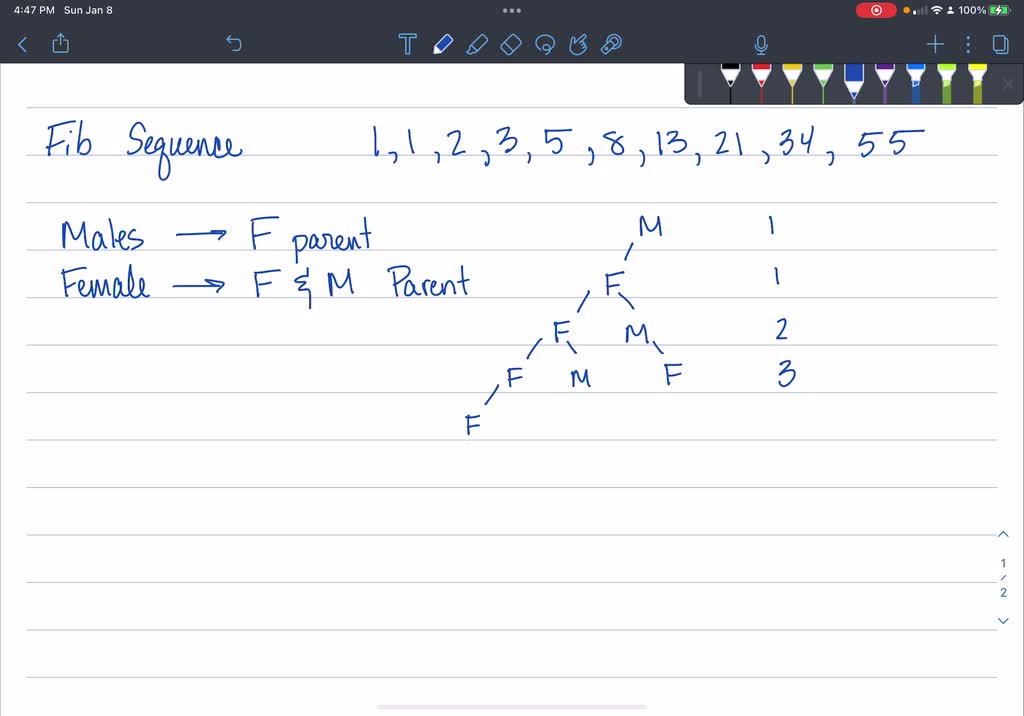 4:47 PM Sun Jan 8
100%
Fib Sequence 1, 1, 2, 3, 5, 8, 13, 21, 34, 55
Males → F parent
Female → F & M Parent
M 1
F 1
F M 2
F M F 3
F
1
/
2